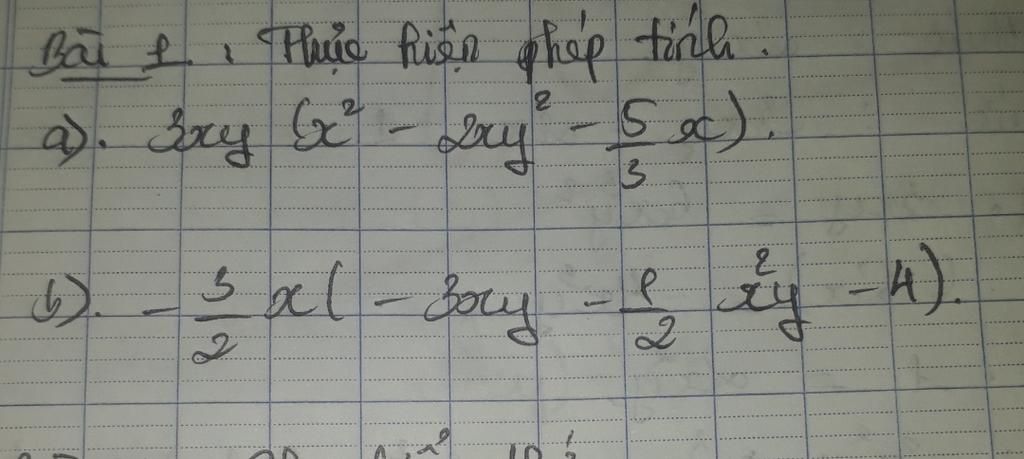 Bài 1. Thực hiện phép tính.
a). 3xy (x² - 2xy² - 5/3 x).
b). - 3/2 x( - 3xy - 1/2 x²y - 4).